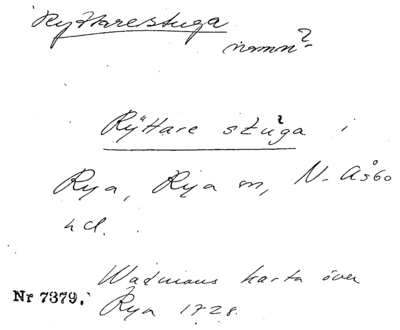 Ryttarestuga
namn?
Rÿttare stuga i
Rya, Rya sn, N. Åsbo
hd.
Wadmans karta över
Nr 7379. Rya 1728.